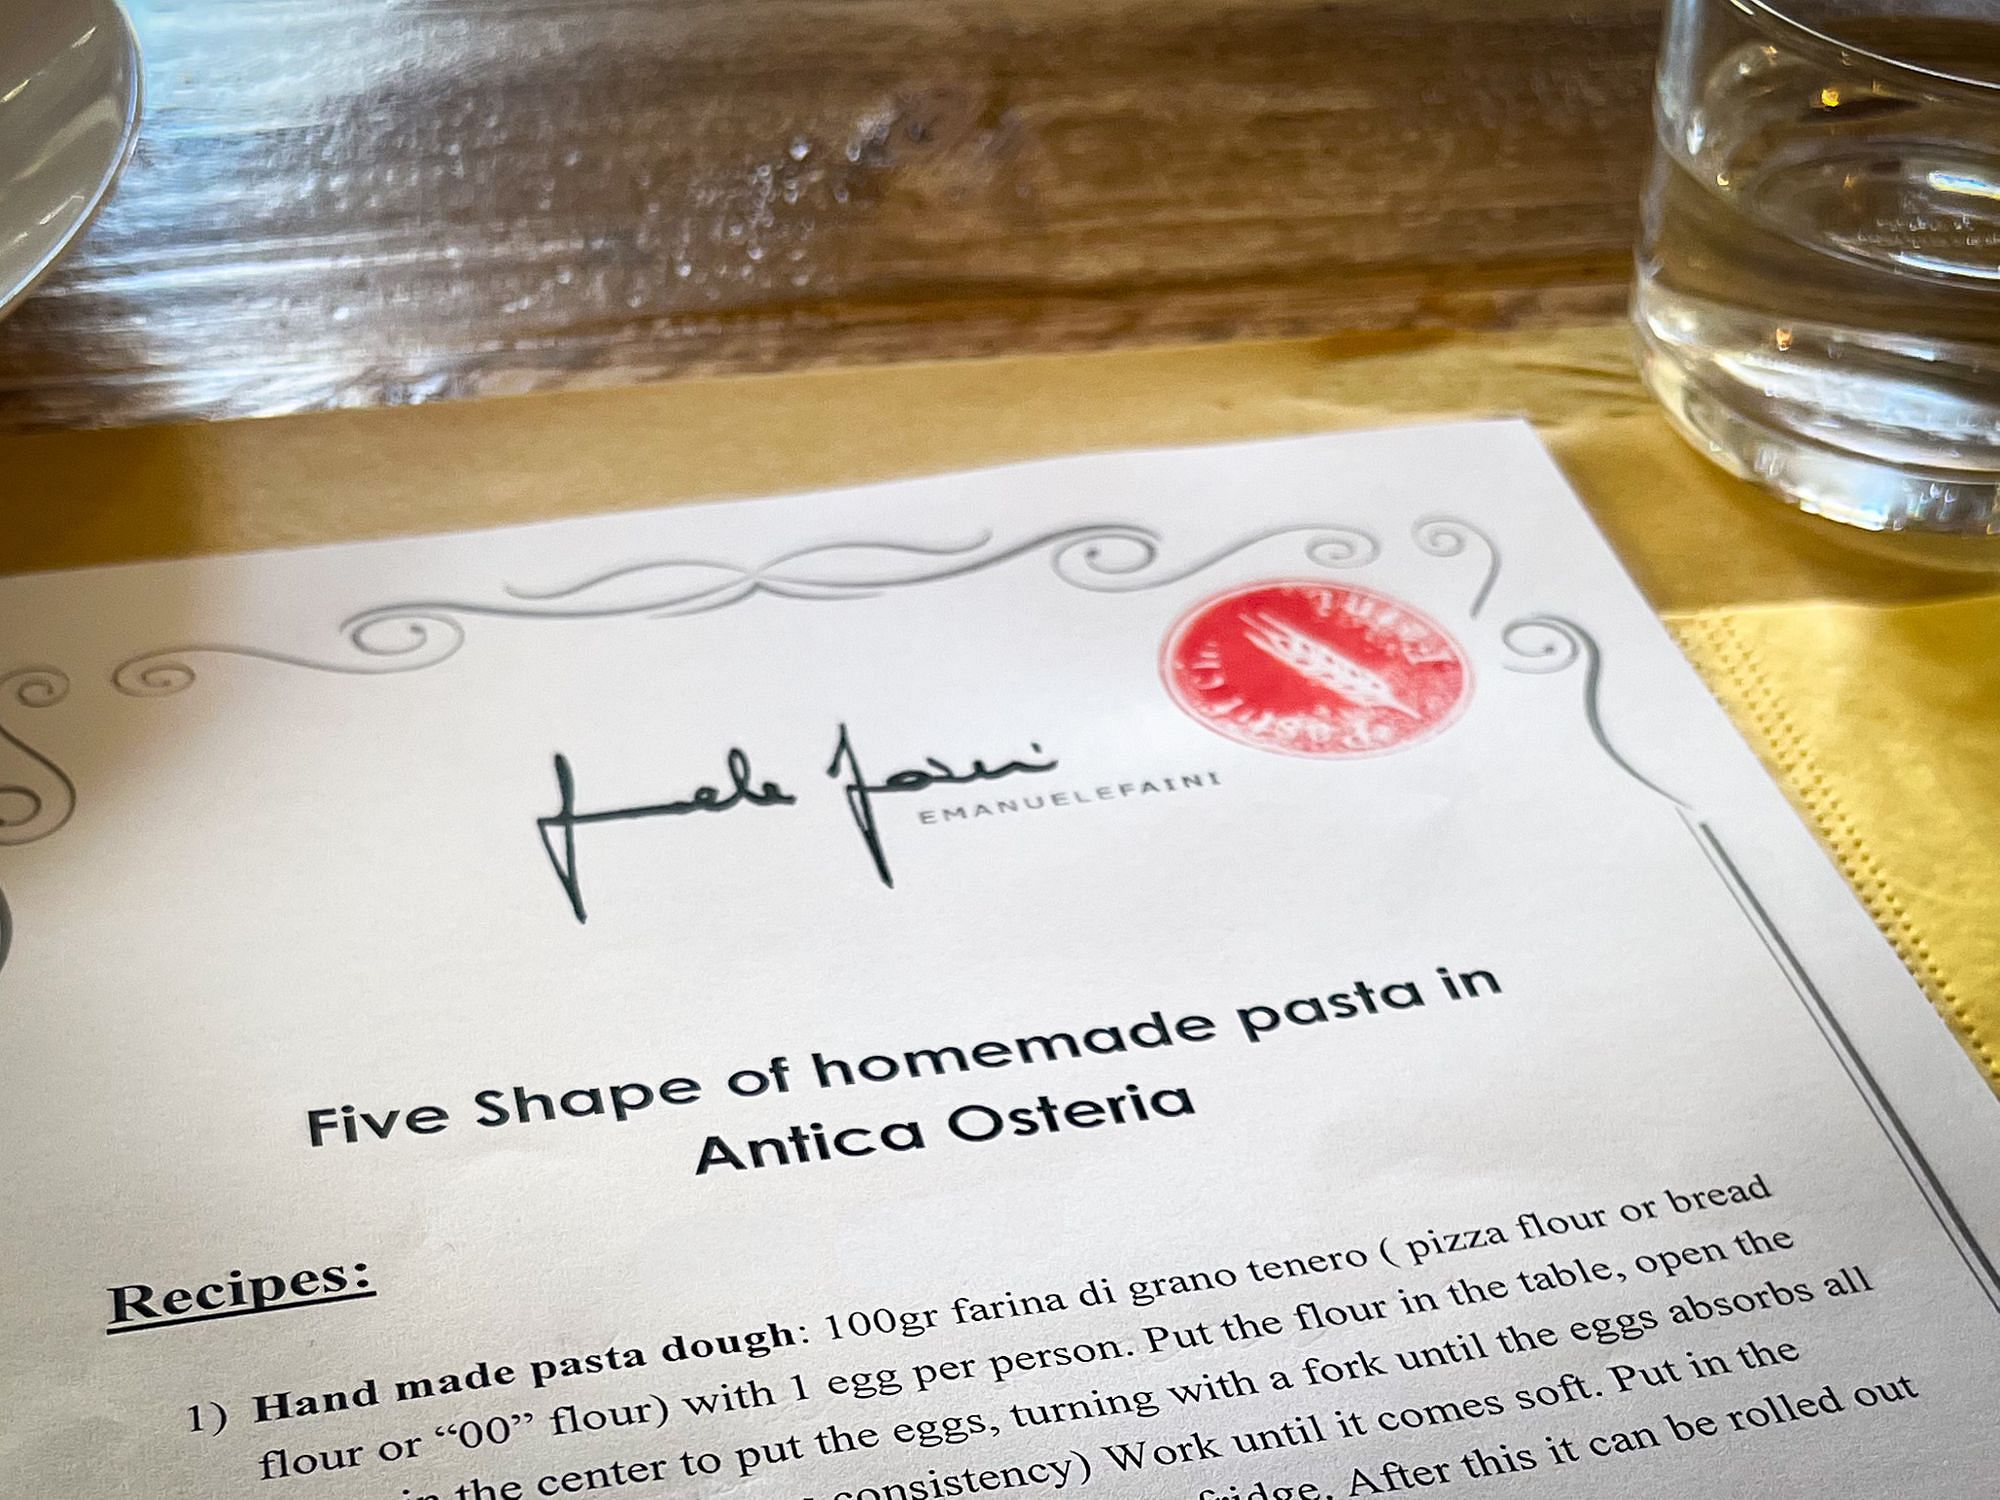 Emanuele Faini
EMANUELEFAINI
Five Shape of homemade pasta in
Antica Osteria
Recipes:
1) Hand made pasta dough: 100gr farina di grano tenero ( pizza flour or bread
flour or “00” flour) with 1 egg per person. Put the flour in the table, open the
in the center to put the eggs, turning with a fork until the eggs absorbs all
consistency) Work until it comes soft. Put in the
fridge. After this it can be rolled out